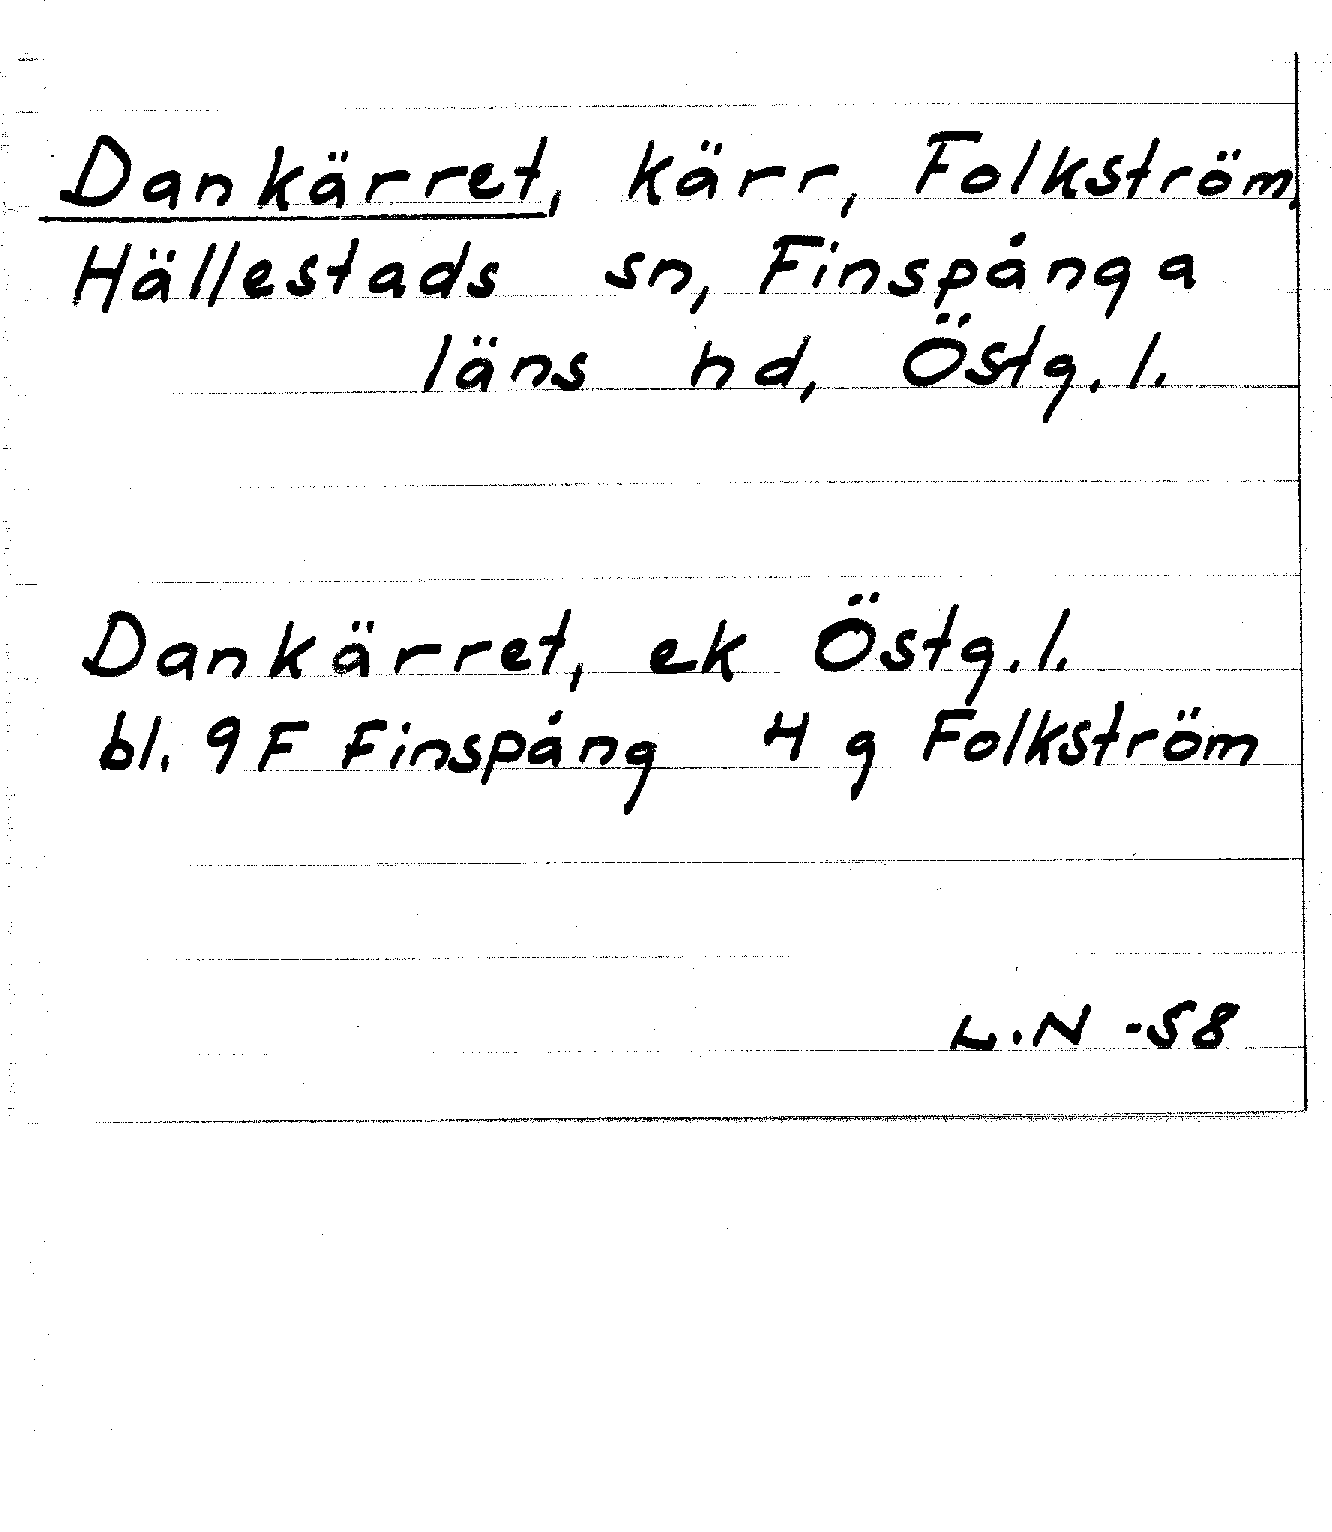 Dankärret, kärr, Folkström,
Hällestads sn, Finspånga
läns hd, Östg.l.
Dankärret, ek Östg.l.
bl. 9F Finspång 4 g Folkström
L.N -58